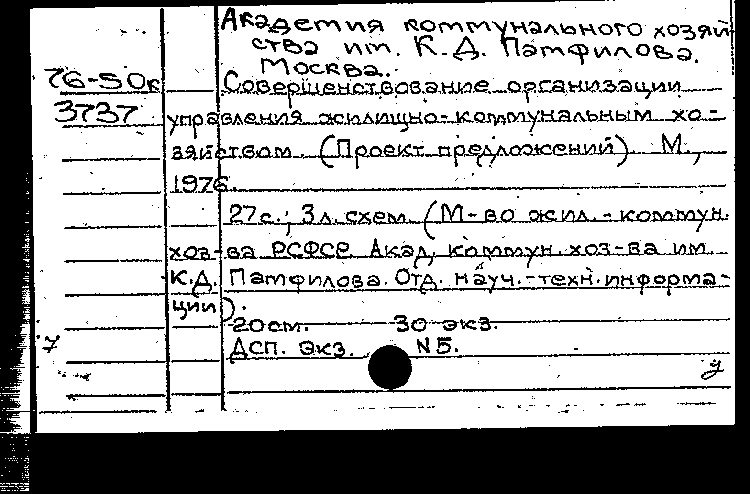 Академия коммунального хозяй-
ства им. К.Д. Памфилова.
Москва.
76-50к
3737
Совершенствование организации
управления жилищно-коммунальным хо-
зяйством. (Проект предложений). М.,
1976.
27с.; 3л. схем. (М-во жил.-коммун.
хоз-ва РСФСР. Акад. коммун. хоз-ва им.
К.Д. Памфилова. Отд. науч.-техн. информа-
ции).
20см. 30 экз.
ДСП. Экз. N5.
7
у